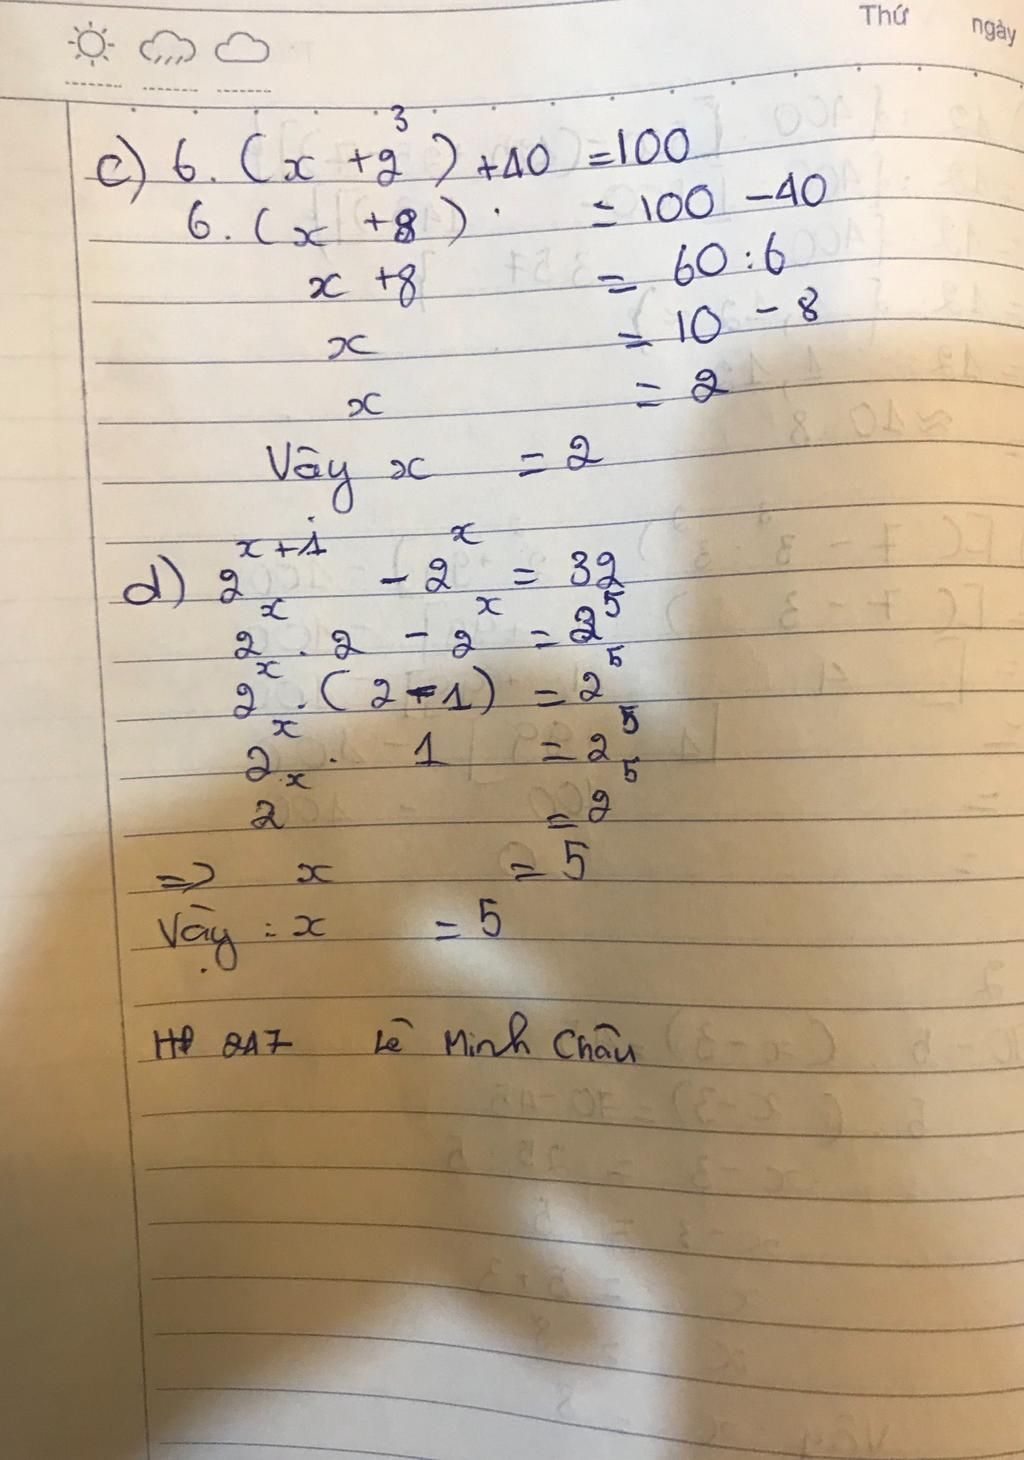 Thứ
ngày
c) 6. (x + 2³) + 40 = 100
6. (x + 8) = 100 - 40
x + 8 = 60 : 6
x = 10 - 8
x = 2
Vây x = 2
d) 2ˣ⁺¹ - 2ˣ = 32
2ˣ . 2 - 2ˣ = 2⁵
2ˣ . (2 - 1) = 2⁵
2ˣ . 1 = 2⁵
2ˣ = 2⁵
=> x = 5
Vậy : x = 5
217 Lê Minh Châu